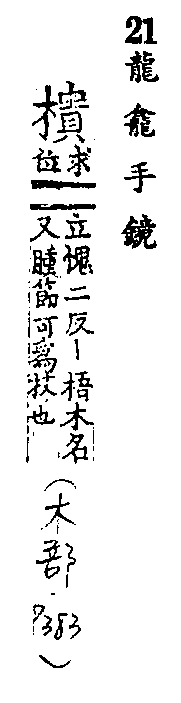 21龍龕手鏡
樻求位
立愧二反丨梧木名
又腫節可爲杖也
(木部.P383)